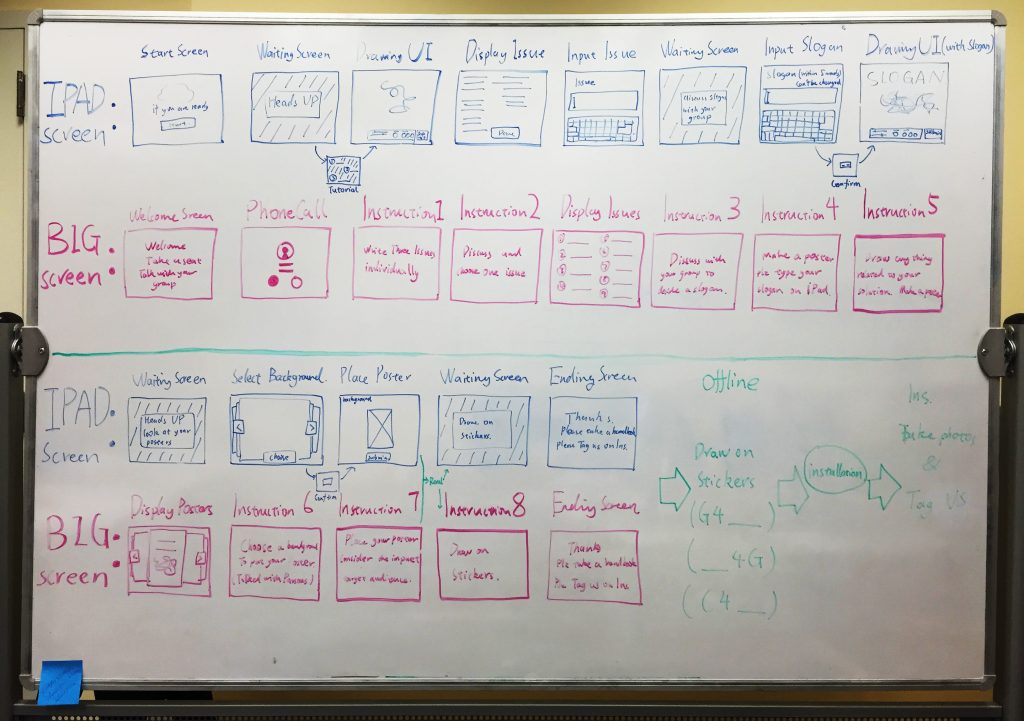 Start Screen
Waiting Screen
Drawing UI
Display Issue
Input Issue
Waiting Screen
Input Slogan
Drawing UI (with Slogan)
IPAD:
screen:
if you are ready
Start
Heads UP
Done
Issue
discuss slogan
with your
group
Slogan (within 5 words)
can't be changed
SLOGAN
Tutorial
Confirm
BIG:
screen:
Welcome Sreen
Phone Call
Instruction 1
Instruction 2
Display Issues
Instruction 3
Instruction 4
Instruction 5
Welcome
Take a seat
Talk with your
group
Write Three Issues
individually
Discuss and
choose one issue
Discuss with
your group to
decide a slogan.
Make a poster
Plz type your
slogan on iPad.
Draw anything
related to your
solution. Make a poster
IPAD:
Screen
Waiting Screen
Select Background.
Place Poster
Waiting Screen
Ending Screen
Heads UP
look at your
posters
choose
background
submit
Draw on
Stickers.
Thanks.
Please take a
Please Tag us on Ins.
Confirm
BIG:
screen:
Display Posters
Instruction 6
Instruction 7
Instruction 8
Ending Screen
Choose a background
To put your poster
Place your poster
Consider the impact
target audience.
Draw on
Stickers.
Thanks
Plz take a
Plz Tag us on Ins
Offline
Draw on
Stickers
(G4 ___)
(__ 4-G)
( (4 ___)
installation
Ins.
Take photos
&
Tag Us